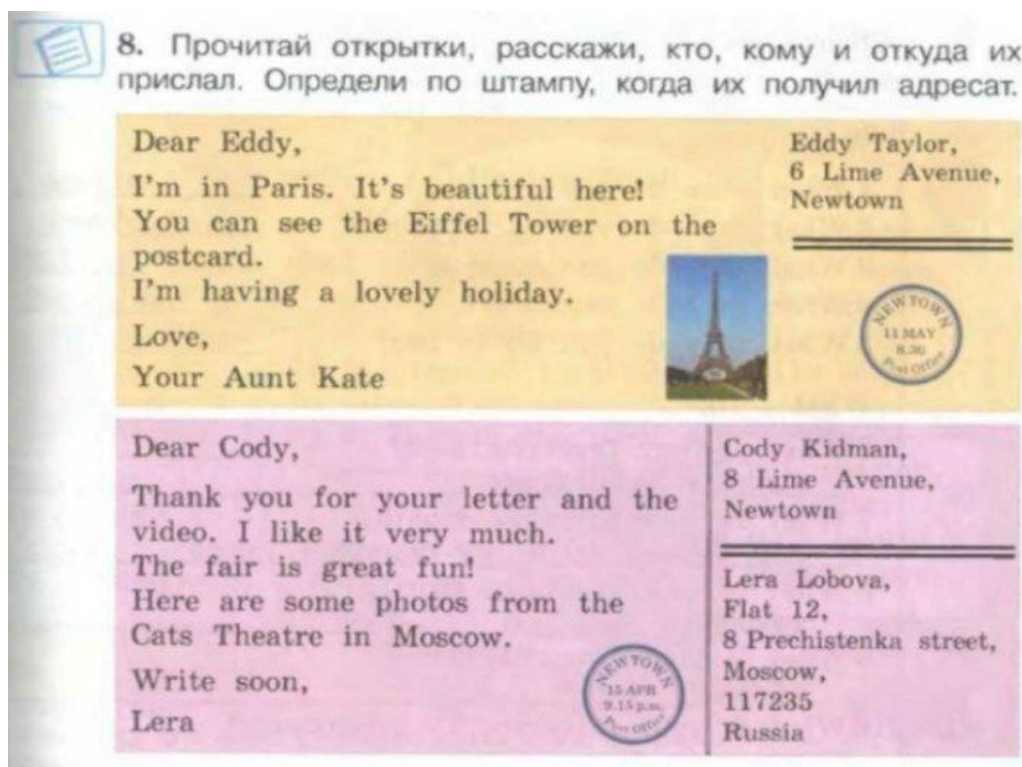 8. Прочитай открытки, расскажи, кто, кому и откуда их
прислал. Определи по штампу, когда их получил адресат.
Dear Eddy,
I'm in Paris. It's beautiful here!
You can see the Eiffel Tower on the
postcard.
I'm having a lovely holiday.
Love,
Your Aunt Kate
Eddy Taylor,
6 Lime Avenue,
Newtown
NEWTOWN
11 MAY
8.30
Post Office
Dear Cody,
Thank you for your letter and the
video. I like it very much.
The fair is great fun!
Here are some photos from the
Cats Theatre in Moscow.
Write soon,
Lera
NEWTOWN
15 APR
9.15 p.m.
Post Office
Cody Kidman,
8 Lime Avenue,
Newtown
Lera Lobova,
Flat 12,
8 Prechistenka street,
Moscow,
117235
Russia